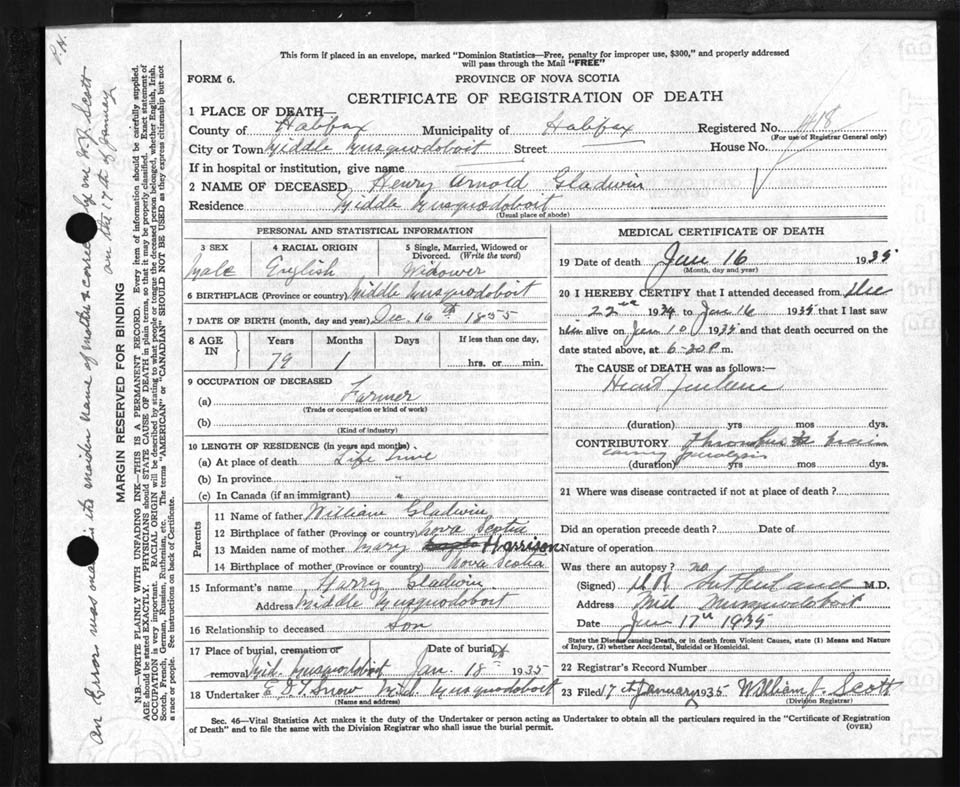 This form if placed in an envelope, marked "Dominion Statistics—Free, penalty for improper use, $300," and properly addressed
will pass through the Mail "FREE"
FORM 6.
PROVINCE OF NOVA SCOTIA
CERTIFICATE OF REGISTRATION OF DEATH
1 PLACE OF DEATH—
County of Halifax Municipality of Halifax Registered No. 418
(For use of Registrar General only)
City or Town Middle Musquodoboit Street House No.
If in hospital or institution, give name
2 NAME OF DECEASED Henry Arnold Gladwin
Residence Middle Musquodoboit
(Usual place of abode)
PERSONAL AND STATISTICAL INFORMATION
3 SEX 4 RACIAL ORIGIN 5 Single, Married, Widowed or
Divorced. (Write the word)
Male English Widower
6 BIRTHPLACE (Province or country) Middle Musquodoboit
7 DATE OF BIRTH (month, day and year) Dec. 16th 1855
8 AGE IN Years Months Days If less than one day,
79 1 hrs. or min.
9 OCCUPATION OF DECEASED
(a) Farmer
(Trade or occupation or kind of work)
(b)
(Kind of industry)
10 LENGTH OF RESIDENCE (in years and months)
(a) At place of death Life time
(b) In province "
(c) In Canada (if an immigrant) "
Parents
11 Name of father William Gladwin
12 Birthplace of father (Province or country) Nova Scotia
13 Maiden name of mother Mary Harrison
14 Birthplace of mother (Province or country) Nova Scotia
15 Informant's name Harry Gladwin
Address Middle Musquodoboit
16 Relationship to deceased Son
17 Place of burial, cremation or Date of burial
removal Mid. Musquodoboit Jan. 18th 1935
18 Undertaker E D Snow Mid. Musquodoboit
(Name and address)
MEDICAL CERTIFICATE OF DEATH
19 Date of death Jan 16 1935
(Month, day and year)
20 I HEREBY CERTIFY that I attended deceased from Dec
22nd 1934 to Jan 16 1935 that I last saw
him alive on Jan 10 1935 and that death occurred on
the date stated above, at 6-20 P.m.
The CAUSE of DEATH was as follows:—
Heart failure
(duration) yrs mos dys.
CONTRIBUTORY Thrombus brain
causing paralysis
(duration) yrs mos dys.
21 Where was disease contracted if not at place of death?
Did an operation precede death? Date of
Nature of operation
Was there an autopsy? no
(Signed) Sutherland M.D.
Address Mid. Musquodoboit
Date Jan 17th 1935
State the Disease causing Death, or in death from Violent Causes, state (1) Means and Nature
of Injury, (2) whether Accidental, Suicidal or Homicidal.
22 Registrar's Record Number
23 Filed 17th January 1935 William J. Scott
(Division Registrar)
Sec. 46—Vital Statistics Act makes it the duty of the Undertaker or person acting as Undertaker to obtain all the particulars required in the "Certificate of Registration
of Death" and to file the same with the Division Registrar who shall issue the burial permit.
(OVER)
MARGIN RESERVED FOR BINDING
N.B.—WRITE PLAINLY WITH UNFADING INK—THIS IS A PERMANENT RECORD. Every item of information should be carefully supplied.
AGE should be stated EXACTLY. PHYSICIANS should STATE CAUSE OF DEATH in plain terms, so that it may be properly classified. Exact statement of
OCCUPATION is very important. RACIAL ORIGIN will be described by stating to what people or tongue the deceased person belonged, whether English, Irish,
Scotch, French, German, Russian, Ruthenian, etc. The terms "AMERICAN" or "CANADIAN" SHOULD NOT BE USED as they express citizenship but not
a race or people. See instructions on back of Certificate.
An Error was made in the maiden name of mother & corrected by me W. J. Scott
on the 17th of January